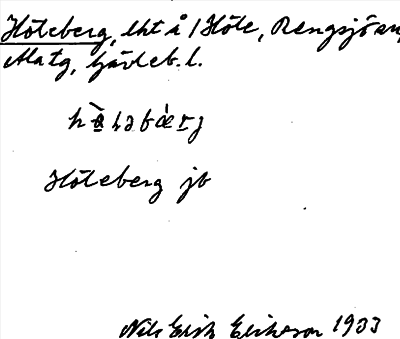 Höteberg, lht å / Höle, Rengsjö sn,
Matg, Gävleb. l.
Höteberg jb
Nils Erik Erikson 1933